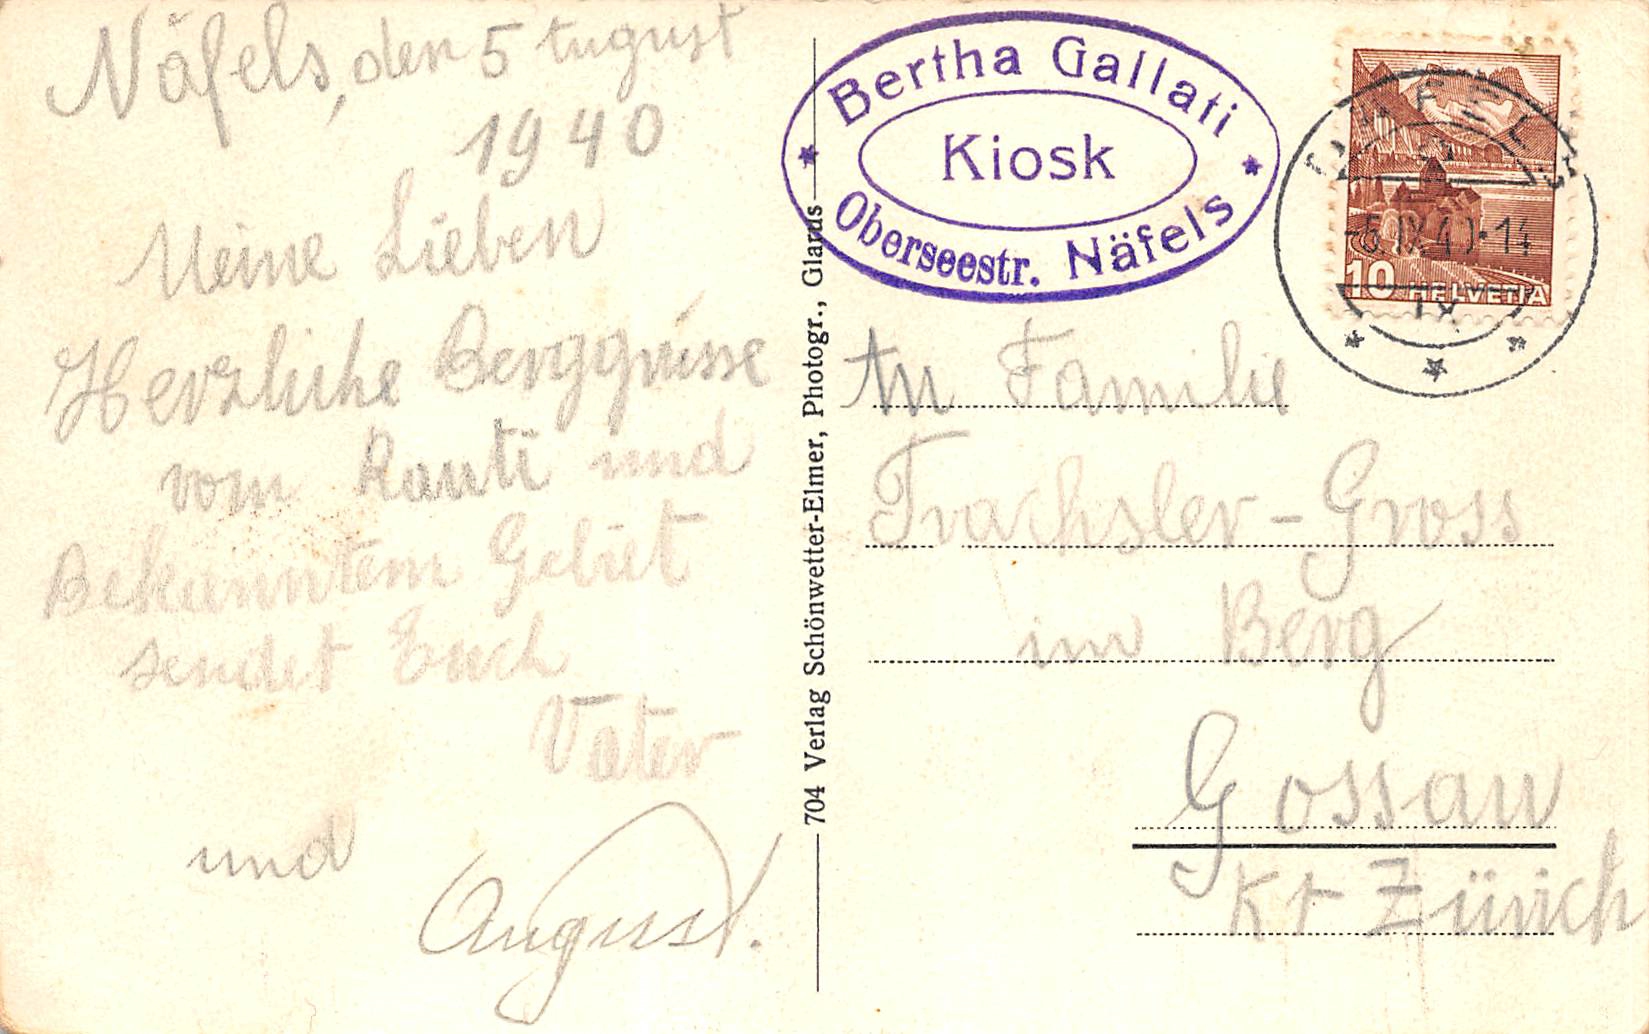 Näfels, den 5 August
1940
Meine Lieben
Herzliche Berggrüsse
vom Rauti und
Bekanntem Gebiet
sendet Euch
Vater
und
August.
704 Verlag Schönwetter-Elmer, Photogr., Glarus
Bertha Gallati
Kiosk
Oberseestr. Näfels
10 HELVETIA
An Familie
Trachsler-Gross
im Berg
Gossau
Kt Zürich